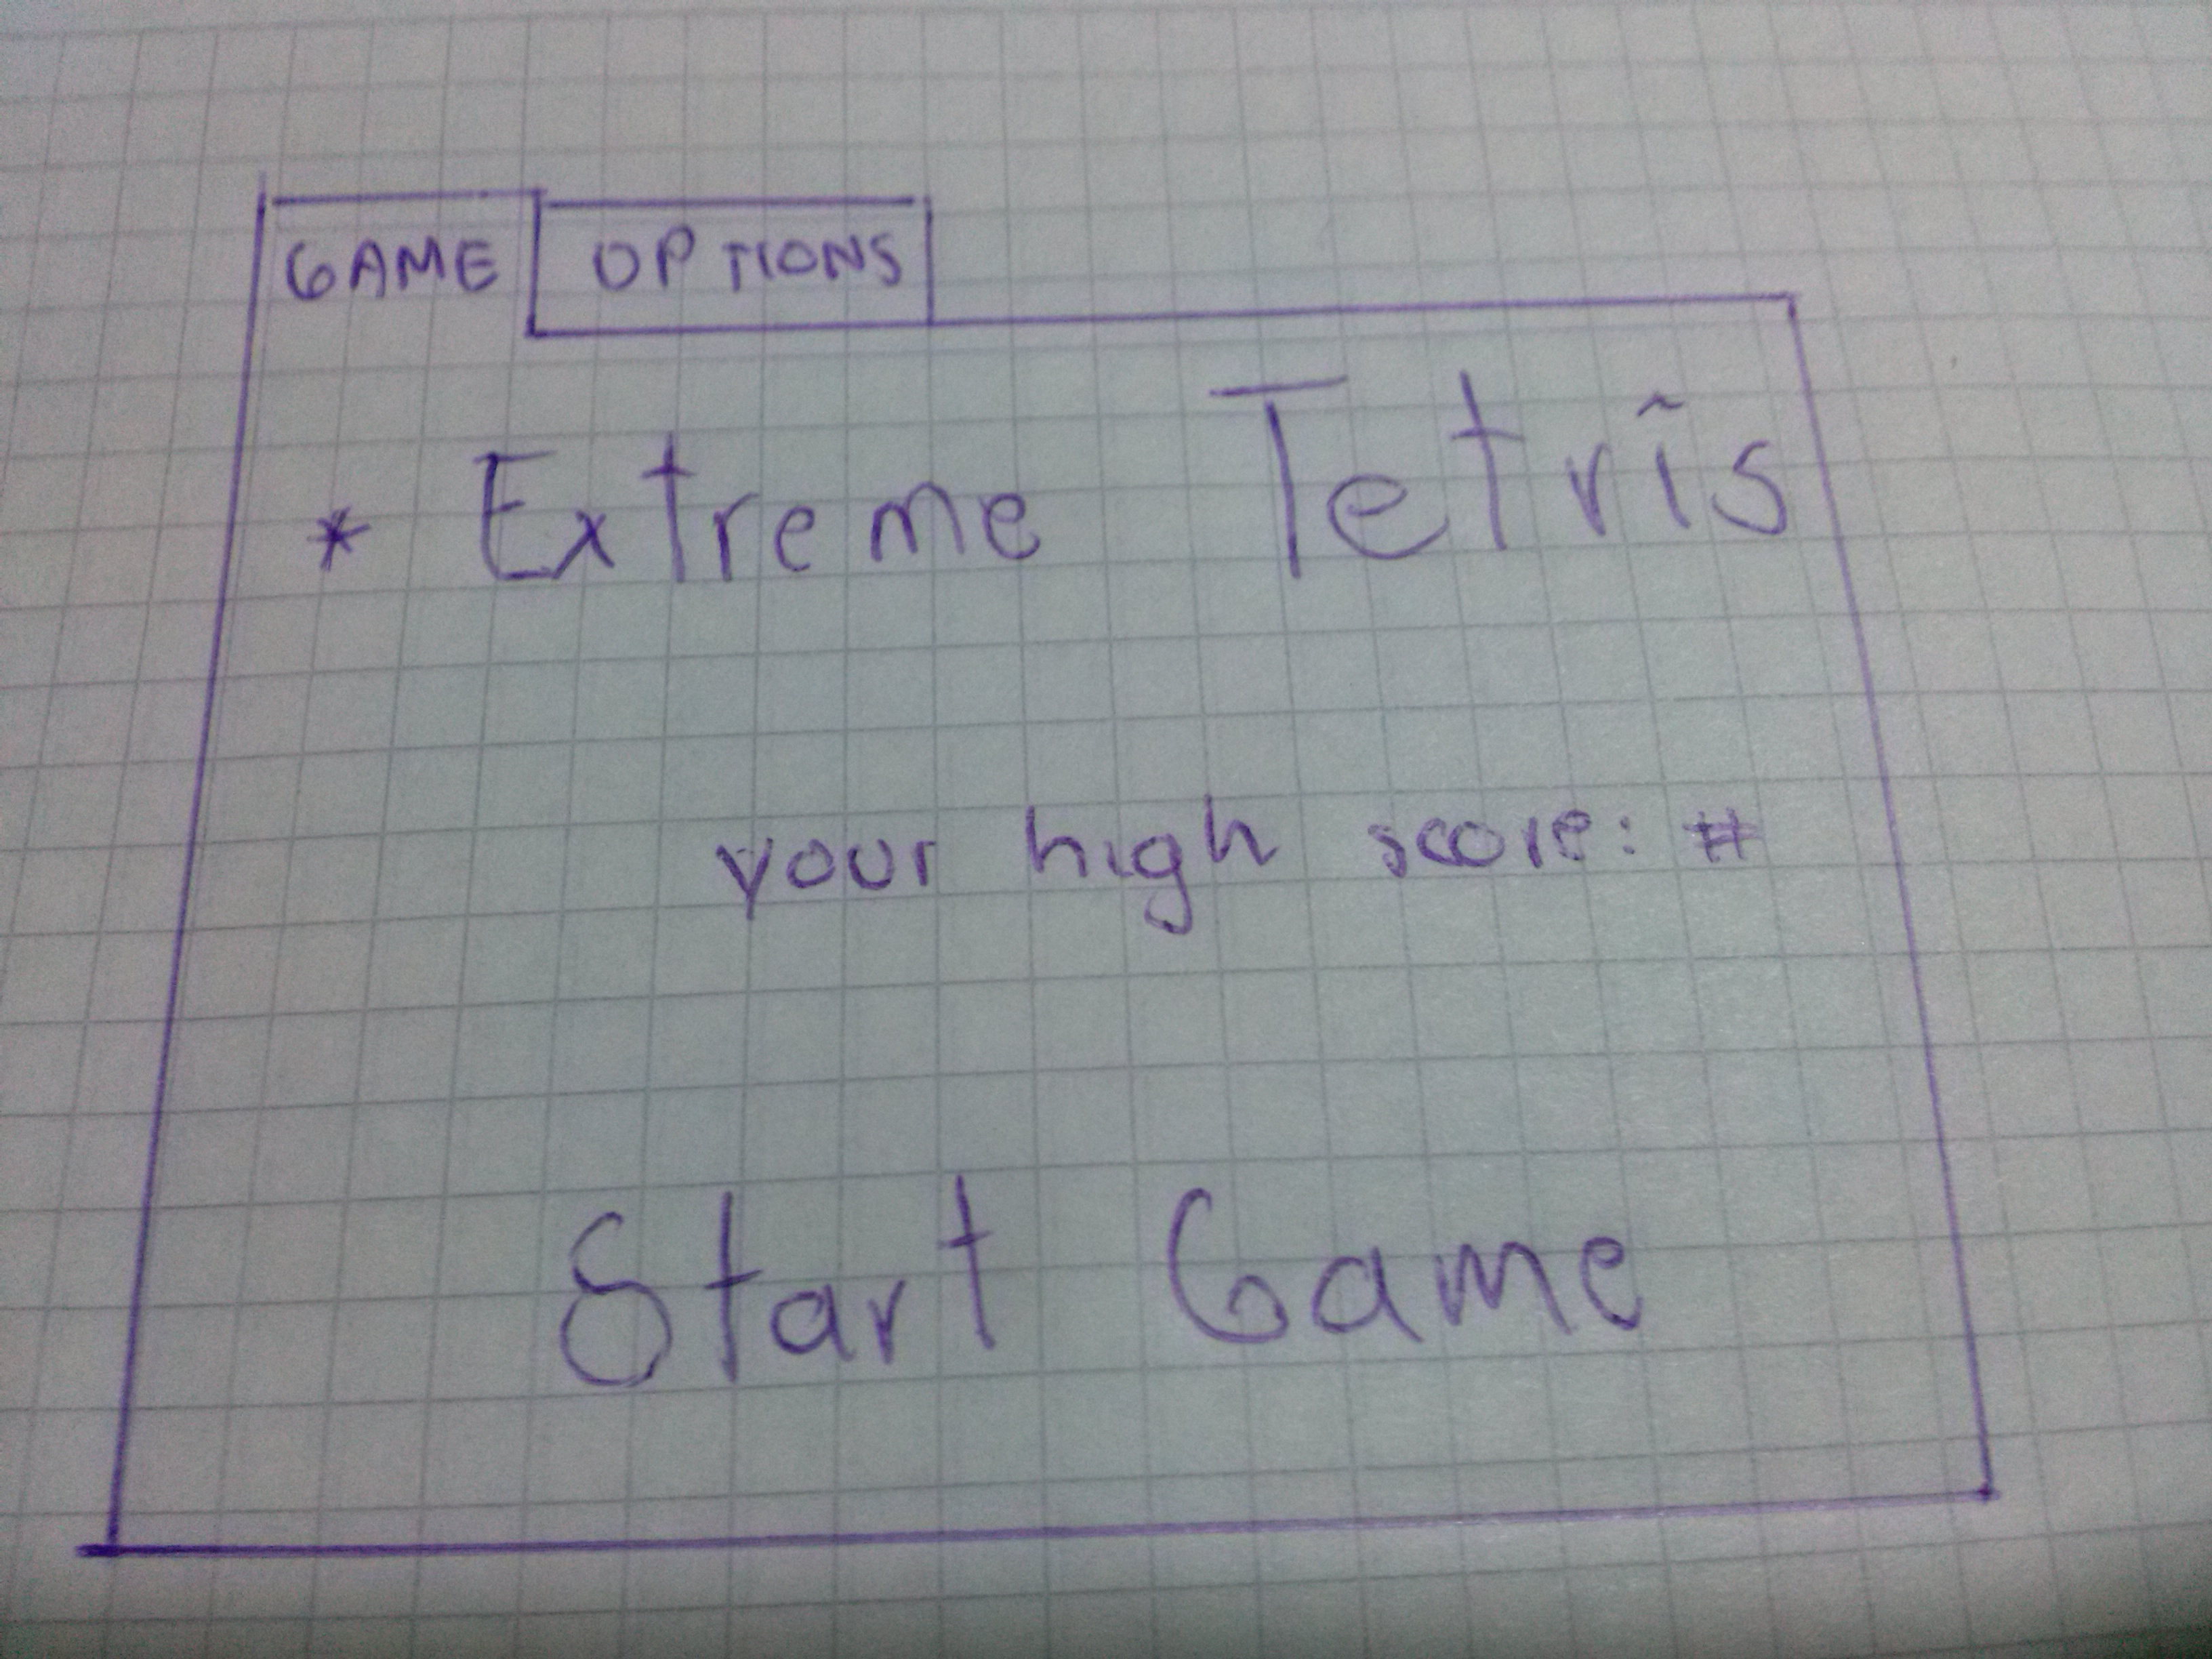 GAME OPTIONS
* Extreme Tetris
your high score: #
Start Game